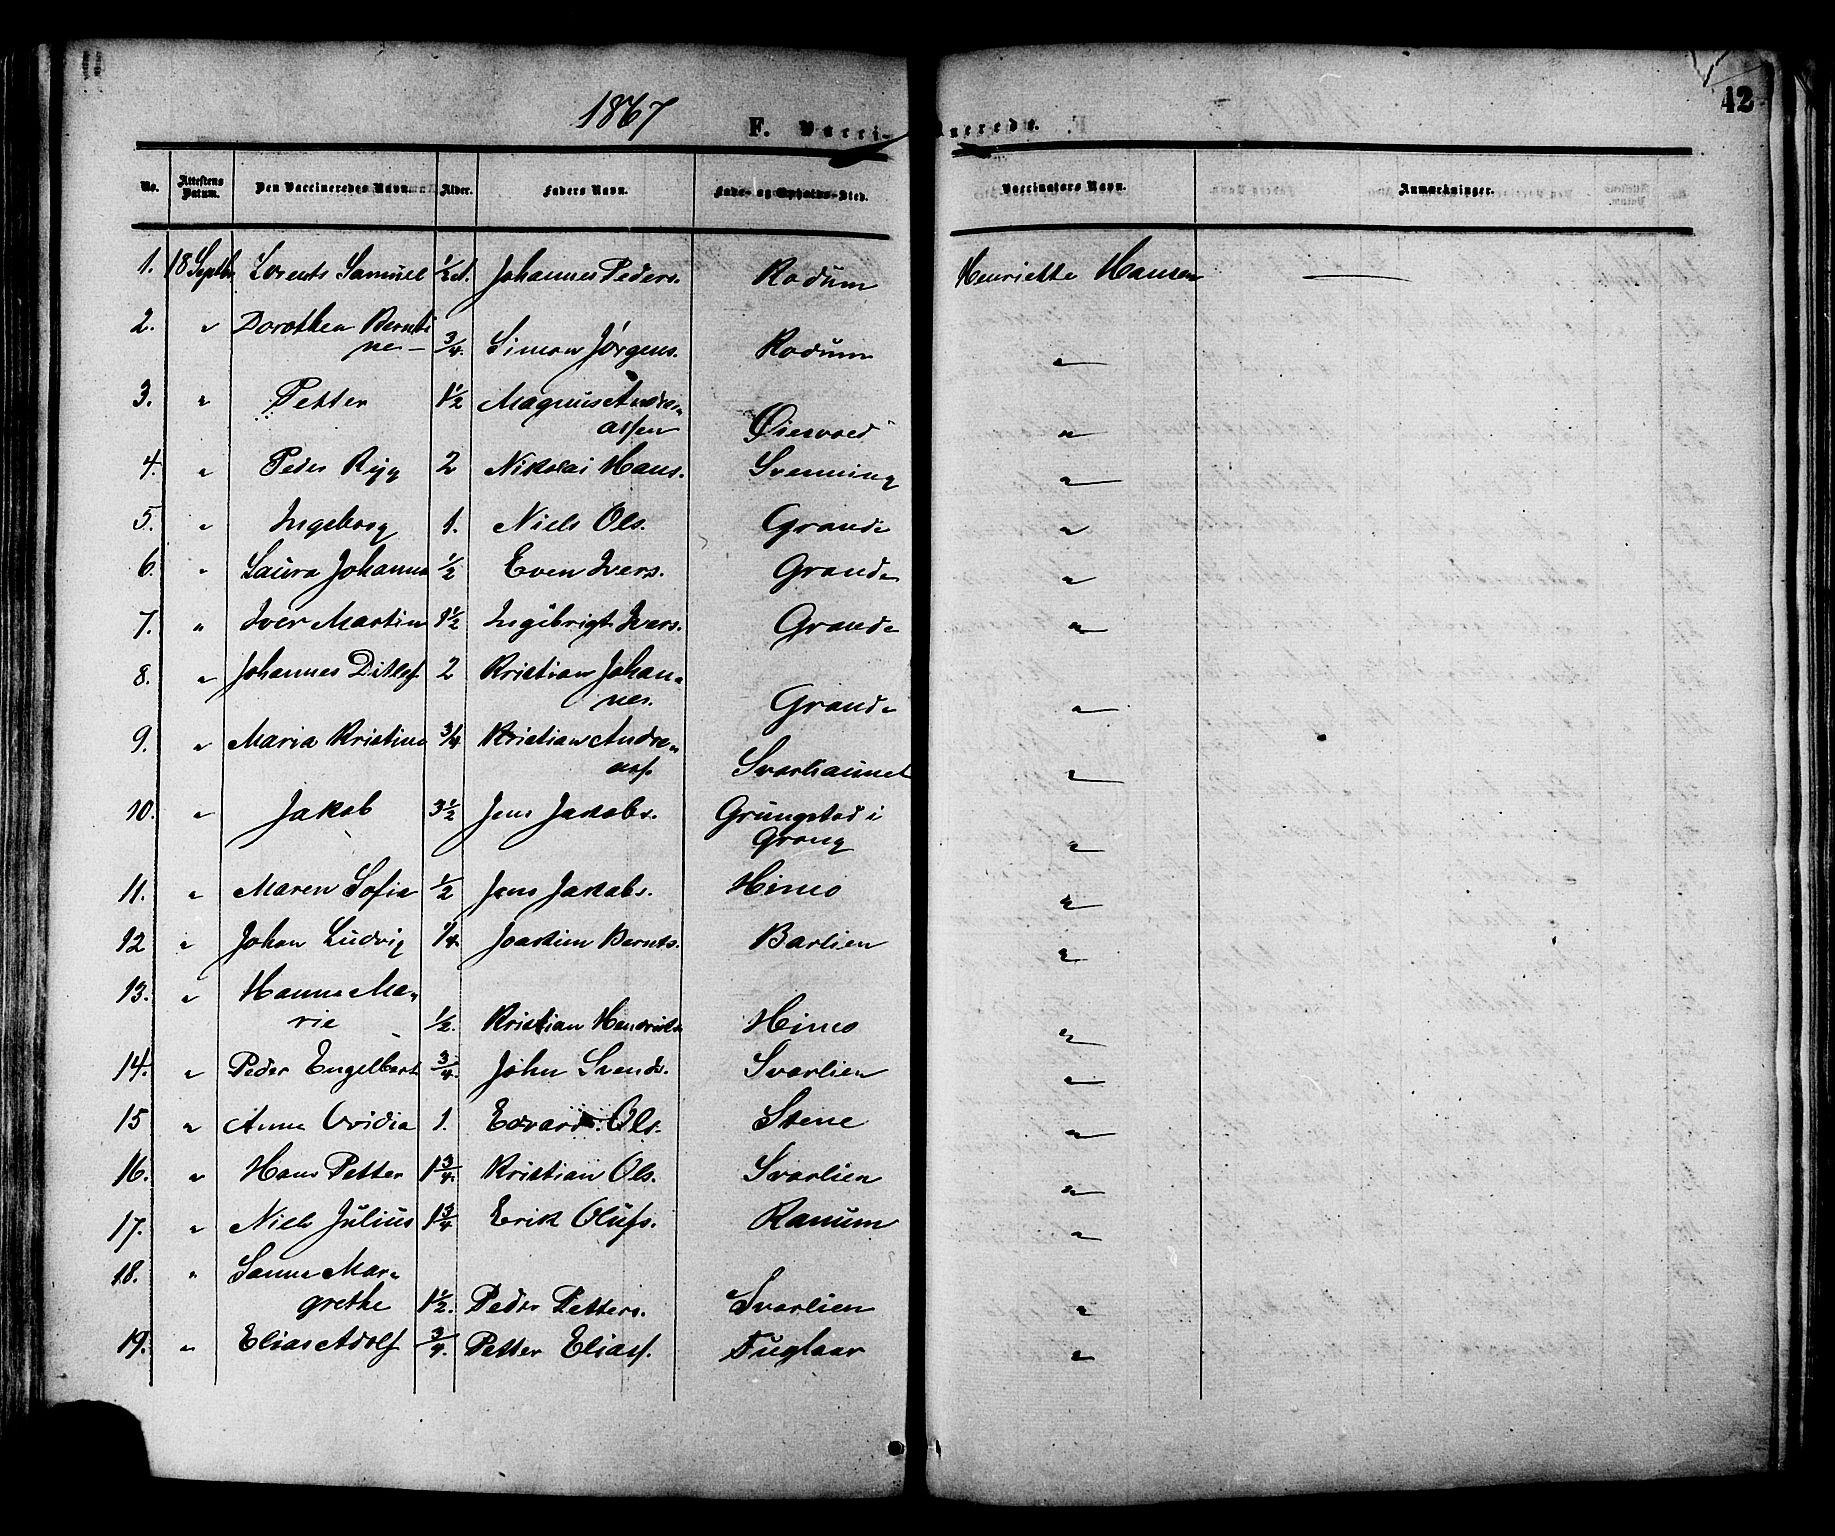 42
1867
F. Vacci- nerede.
No. Attestens Datum. Den Vaccineredes Navn. Alder. Faders Navn. Føde- og Opholds-Sted. Vaccinators Navn. Anmærkninger.
1. 18 Septbr Lorents Samuel ½ A. Johannes Peders. Rodum Henriette Hansen —
2. " Dorothea Bernti
ne — ¾ Simon Jørgens. Rodum "
3. " Petter 1½ Magnus Andre-
assen Øiesvold "
4. " Peder Ryg 2 Nikolai Hans. Svenning "
5. " Ingeborg 1. Niels Ols. Grande "
6. " Laura Johanna ½ Even Ivers. Grande "
7. " Iver Martin 1½ Ingebrigt Ivers. Grande "
8. " Johannes Ditlef 2 Kristian Johan-
nes. Grande "
9. " Maria Kristine ¾ Kristian Andre-
ass. Svarhaunet "
10. " Jakob 3½ Jens Jakobs. Grungstad i
Grong "
11. " Maren Sofie ½ Jens Jakobs. Himo "
12 " Johan Ludvig ¼ Joakim Bernts. Barlien "
13. " Hanna Ma-
rie ½. Kristian Hendriks Himo "
14. " Peder Engelbert ¾. John Svends. Svarlien "
15 " Anne Ovidia 1. Edvard Ols. Stene "
16. " Hans Petter 1¾. Kristian Ols. Svarlien "
17. " Niels Julius 1¾ Erik Olufs. Ranum "
18. " Sanna Mar-
grethe 1½. Peder Petters. Svarlien "
19. " Elias Adolf ¾. Petter Eliass. Fuglaar "